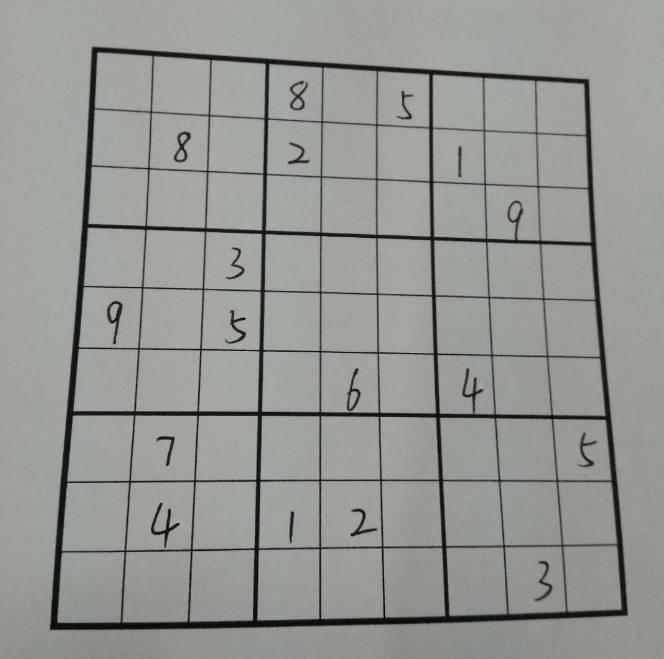 8 5
8 2 1
9
3
9 5
6 4
7 5
4 1 2
3